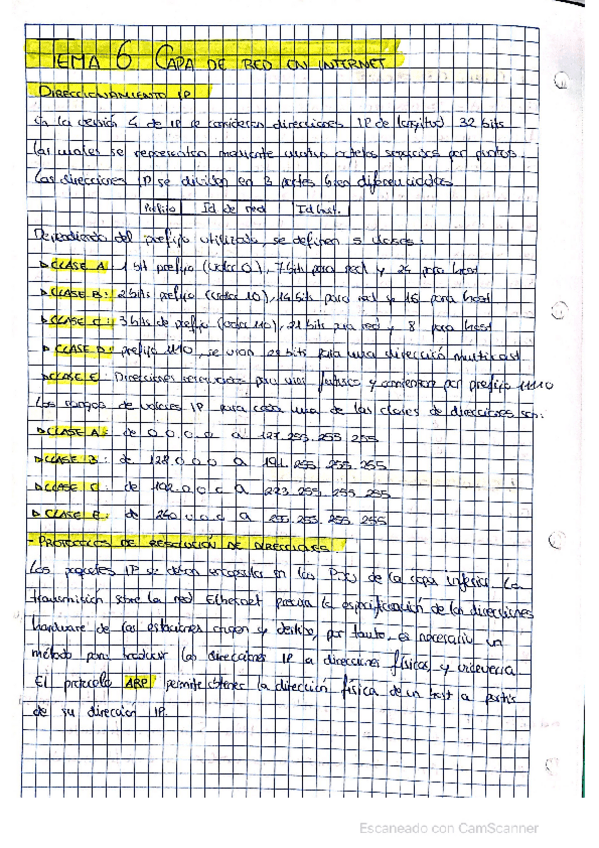 TEMA 6 CAPA DE RED EN INTERNET
DIRECCIONAMIENTO IP
En la versión 4 de IP se consideran direcciones IP de longitud 32 bits
las cuales se representan mediante cuatro octetos separados por puntos.
Las direcciones IP se dividen en 3 partes bien diferenciadas
Prefijo Id de red Id host.
Dependiendo del prefijo utilizado, se definen 5 clases:
CLASE A: 1 bit prefijo (valor 0), 7 bits para red y 24 para host
CLASE B: 2 bits prefijo (valor 10), 14 bits para red y 16 para host
CLASE C: 3 bits de prefijo (valor 110), 21 bits para red y 8 para host
CLASE D: prefijo 1110, se usan 28 bits para una direcció multicast
CLASE E: Direcciones reservadas para usos futuros y comienzan por prefijo 11110
Los rangos de valores IP para cada una de las clases de direcciones son:
CLASE A: de 0.0.0.0 a 127.255.255.255
CLASE B: de 128.0.0.0 a 191.255.255.255
CLASE C: de 192.0.0.0 a 223.255.255.255
CLASE E: de 240.0.0.0 a 255.255.255.255
- PROTOCOLOS DE RESOLUCIÓN DE DIRECCIONES
Los paquetes IP se deben encapsular en las PDU de la capa inferior. La
transmisión sobre la red Ethernet precisa la especificación de las direcciones
hardware de las estaciones origen y destino, por tanto, es necesario un
método para traducir las direcciones IP a direcciones físicas, y viceversa
El protocolo ARP permite obtener la dirección física de un host a partir
de su dirección IP.
Escaneado con CamScanner